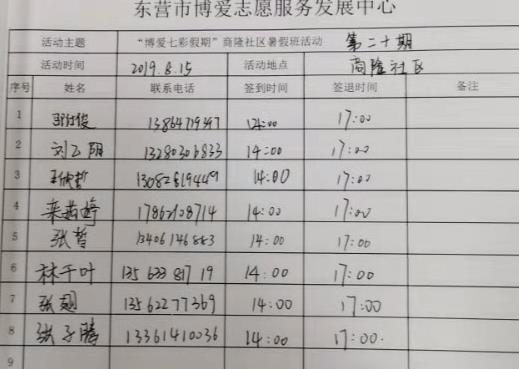 东营市博爱志愿服务发展中心
活动主题 “博爱七彩假期”商隆社区暑假班活动 第二十期
活动时间 2019.8.15 活动地点 商隆社区
序号 姓名 联系电话 签到时间 签退时间 备注
1 14:00 17:00
2 刘乙阳 13280306833 14:00 17:00
3 13082819449 14:00 17:00
4 14:00 17:00
5 张哲 13406146883 14:00 17:00
6 林千叶 13563381719 14:00 17:00
7 张翘 13562277369 14:00 17:00
8 张子腾 13361410036 14:00 17:00.
9